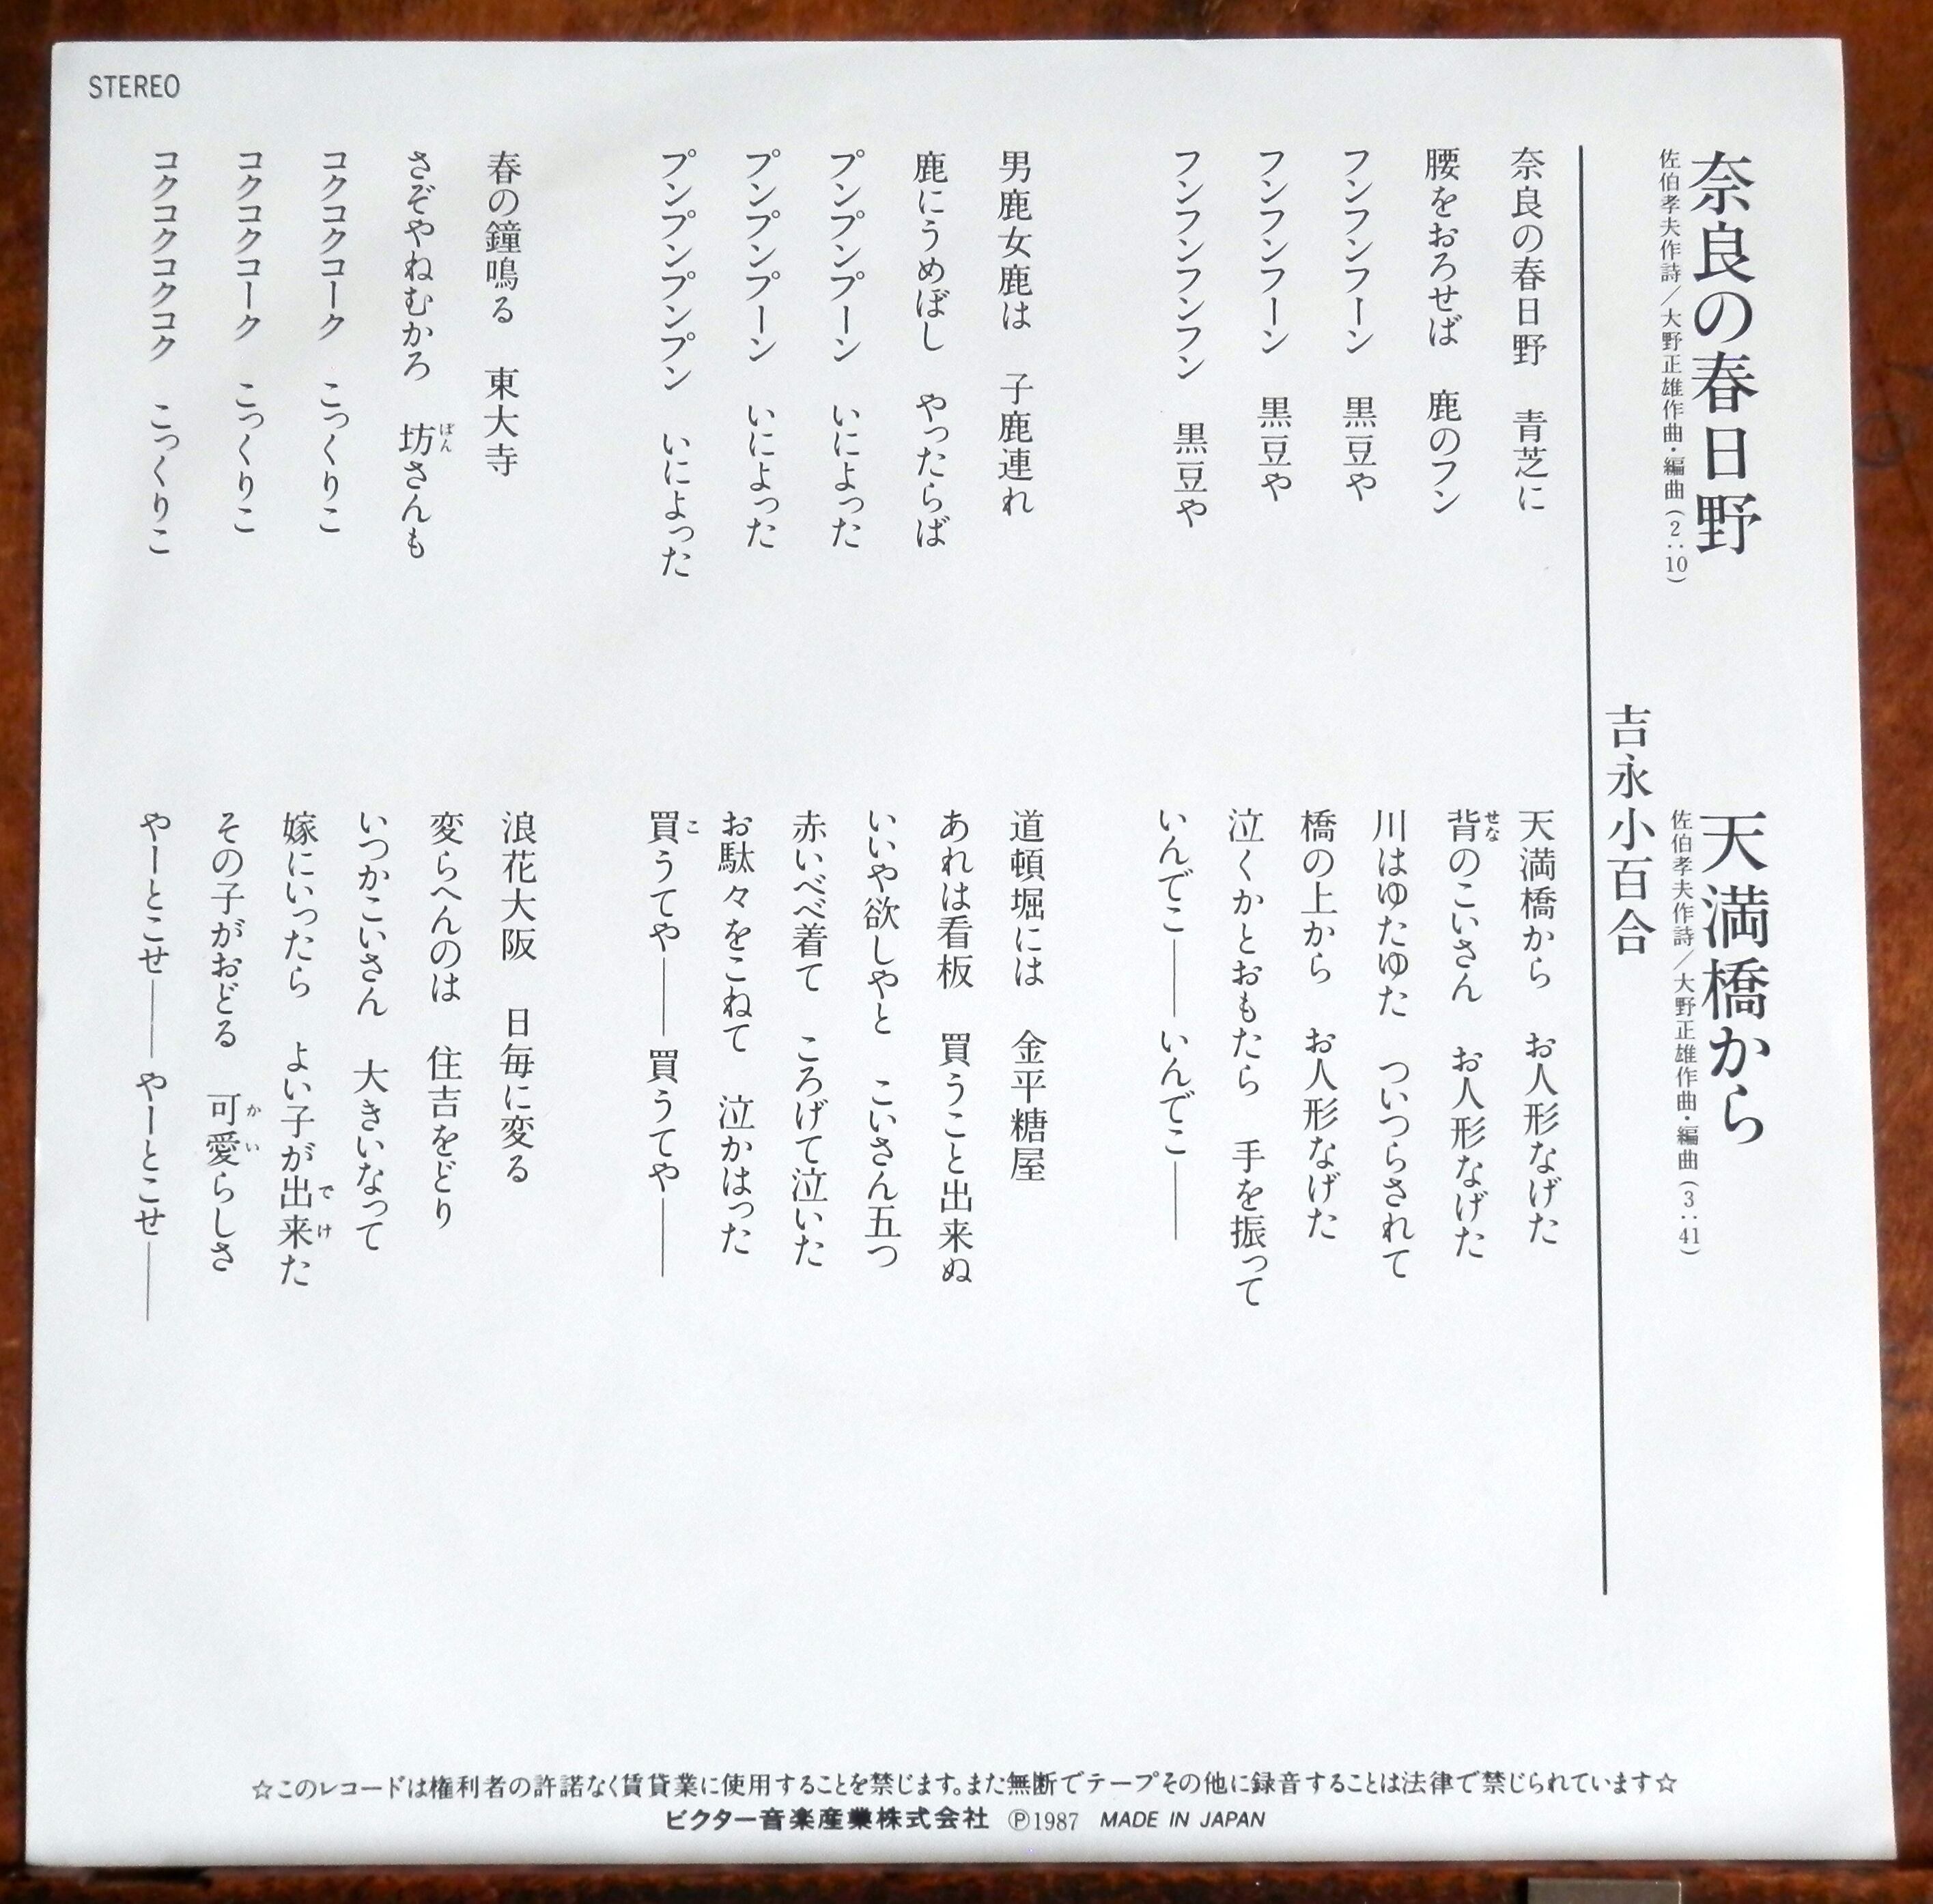 STEREO
奈良の春日野
佐伯孝夫作詩／大野正雄作曲・編曲（2：10）
天満橋から
佐伯孝夫作詩／大野正雄作曲・編曲（3：41）
吉永小百合
奈良の春日野　青芝に
腰をおろせば　鹿のフン
フンフンフーン　黒豆や
フンフンフーン　黒豆や
フンフンフンフンフン　黒豆や
男鹿女鹿は　子鹿連れ
鹿にうめぼし　やったらば
プンプンプーン　いによった
プンプンプーン　いによった
プンプンプンプンプン　いによった
春の鐘鳴る　東大寺
さぞやねむかろ　坊さんも
ぼん
コクコクコーク　こっくりこ
コクコクコーク　こっくりこ
コクコクコクコク　こっくりこ
天満橋から　お人形なげた
背のこいさん　お人形なげた
せな
川はゆたゆた　ついつらされて
橋の上から　お人形なげた
泣くかとおもたら　手を振って
いんでこ――いんでこ――
道頓堀には　金平糖屋
あれは看板　買うこと出来ぬ
いいや欲しやと　こいさん五つ
赤いべべ着て　ころげて泣いた
お駄々をこねて　泣かはった
買うてや――買うてや――
こ
浪花大阪　日毎に変る
変らへんのは　住吉をどり
いつかこいさん　大きいなって
嫁にいったら　よい子が出来た
でけ
その子がおどる　可愛らしさ
かい
やーとこせ――やーとこせ――
☆このレコードは権利者の許諾なく賃貸業に使用することを禁じます。また無断でテープその他に録音することは法律で禁じられています☆
ビクター音楽産業株式会社　Ⓟ1987　MADE IN JAPAN